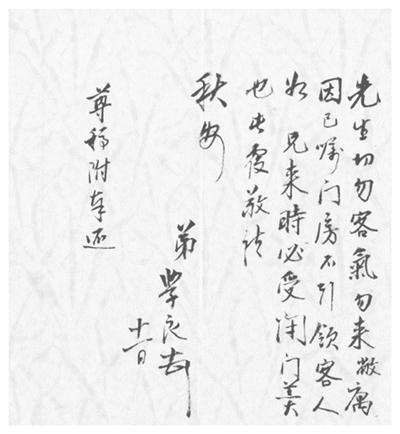 先生切勿客氣勿来敝寓
因已嘱门房不引领客人
如兄来時必受闭门羹
也此覆敬请
秋安
弟學良
十一日
尊稿附奉还